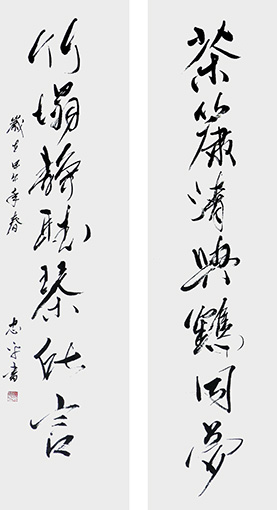 茶簾清與鶴同夢
竹榻靜聽琴所言
歲在甲午年春
書